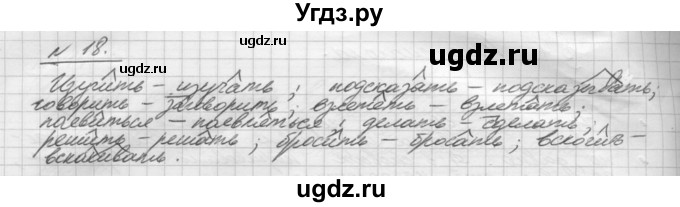 Угдз.ру
ugdz.ru ugdz.ru
N 18.
Изучить – изучать; подсказать – подсказывать;
говорить – заговорить; взлетать – взлететь;
появиться – появляться; делать – сделать;
решить – решать; бросить – бросать; вскочить –
вскакивать.
ugdz.ru ugdz.ru
ugdz.ru